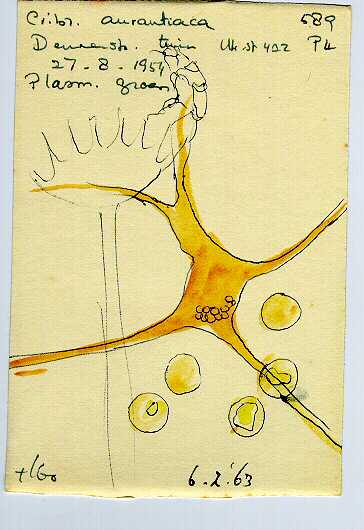 Cribr. aurantiaca 589
Deurenstr. tuin Utr st 422 P4
27-8-1954
Plasm. groen
6-2-'63